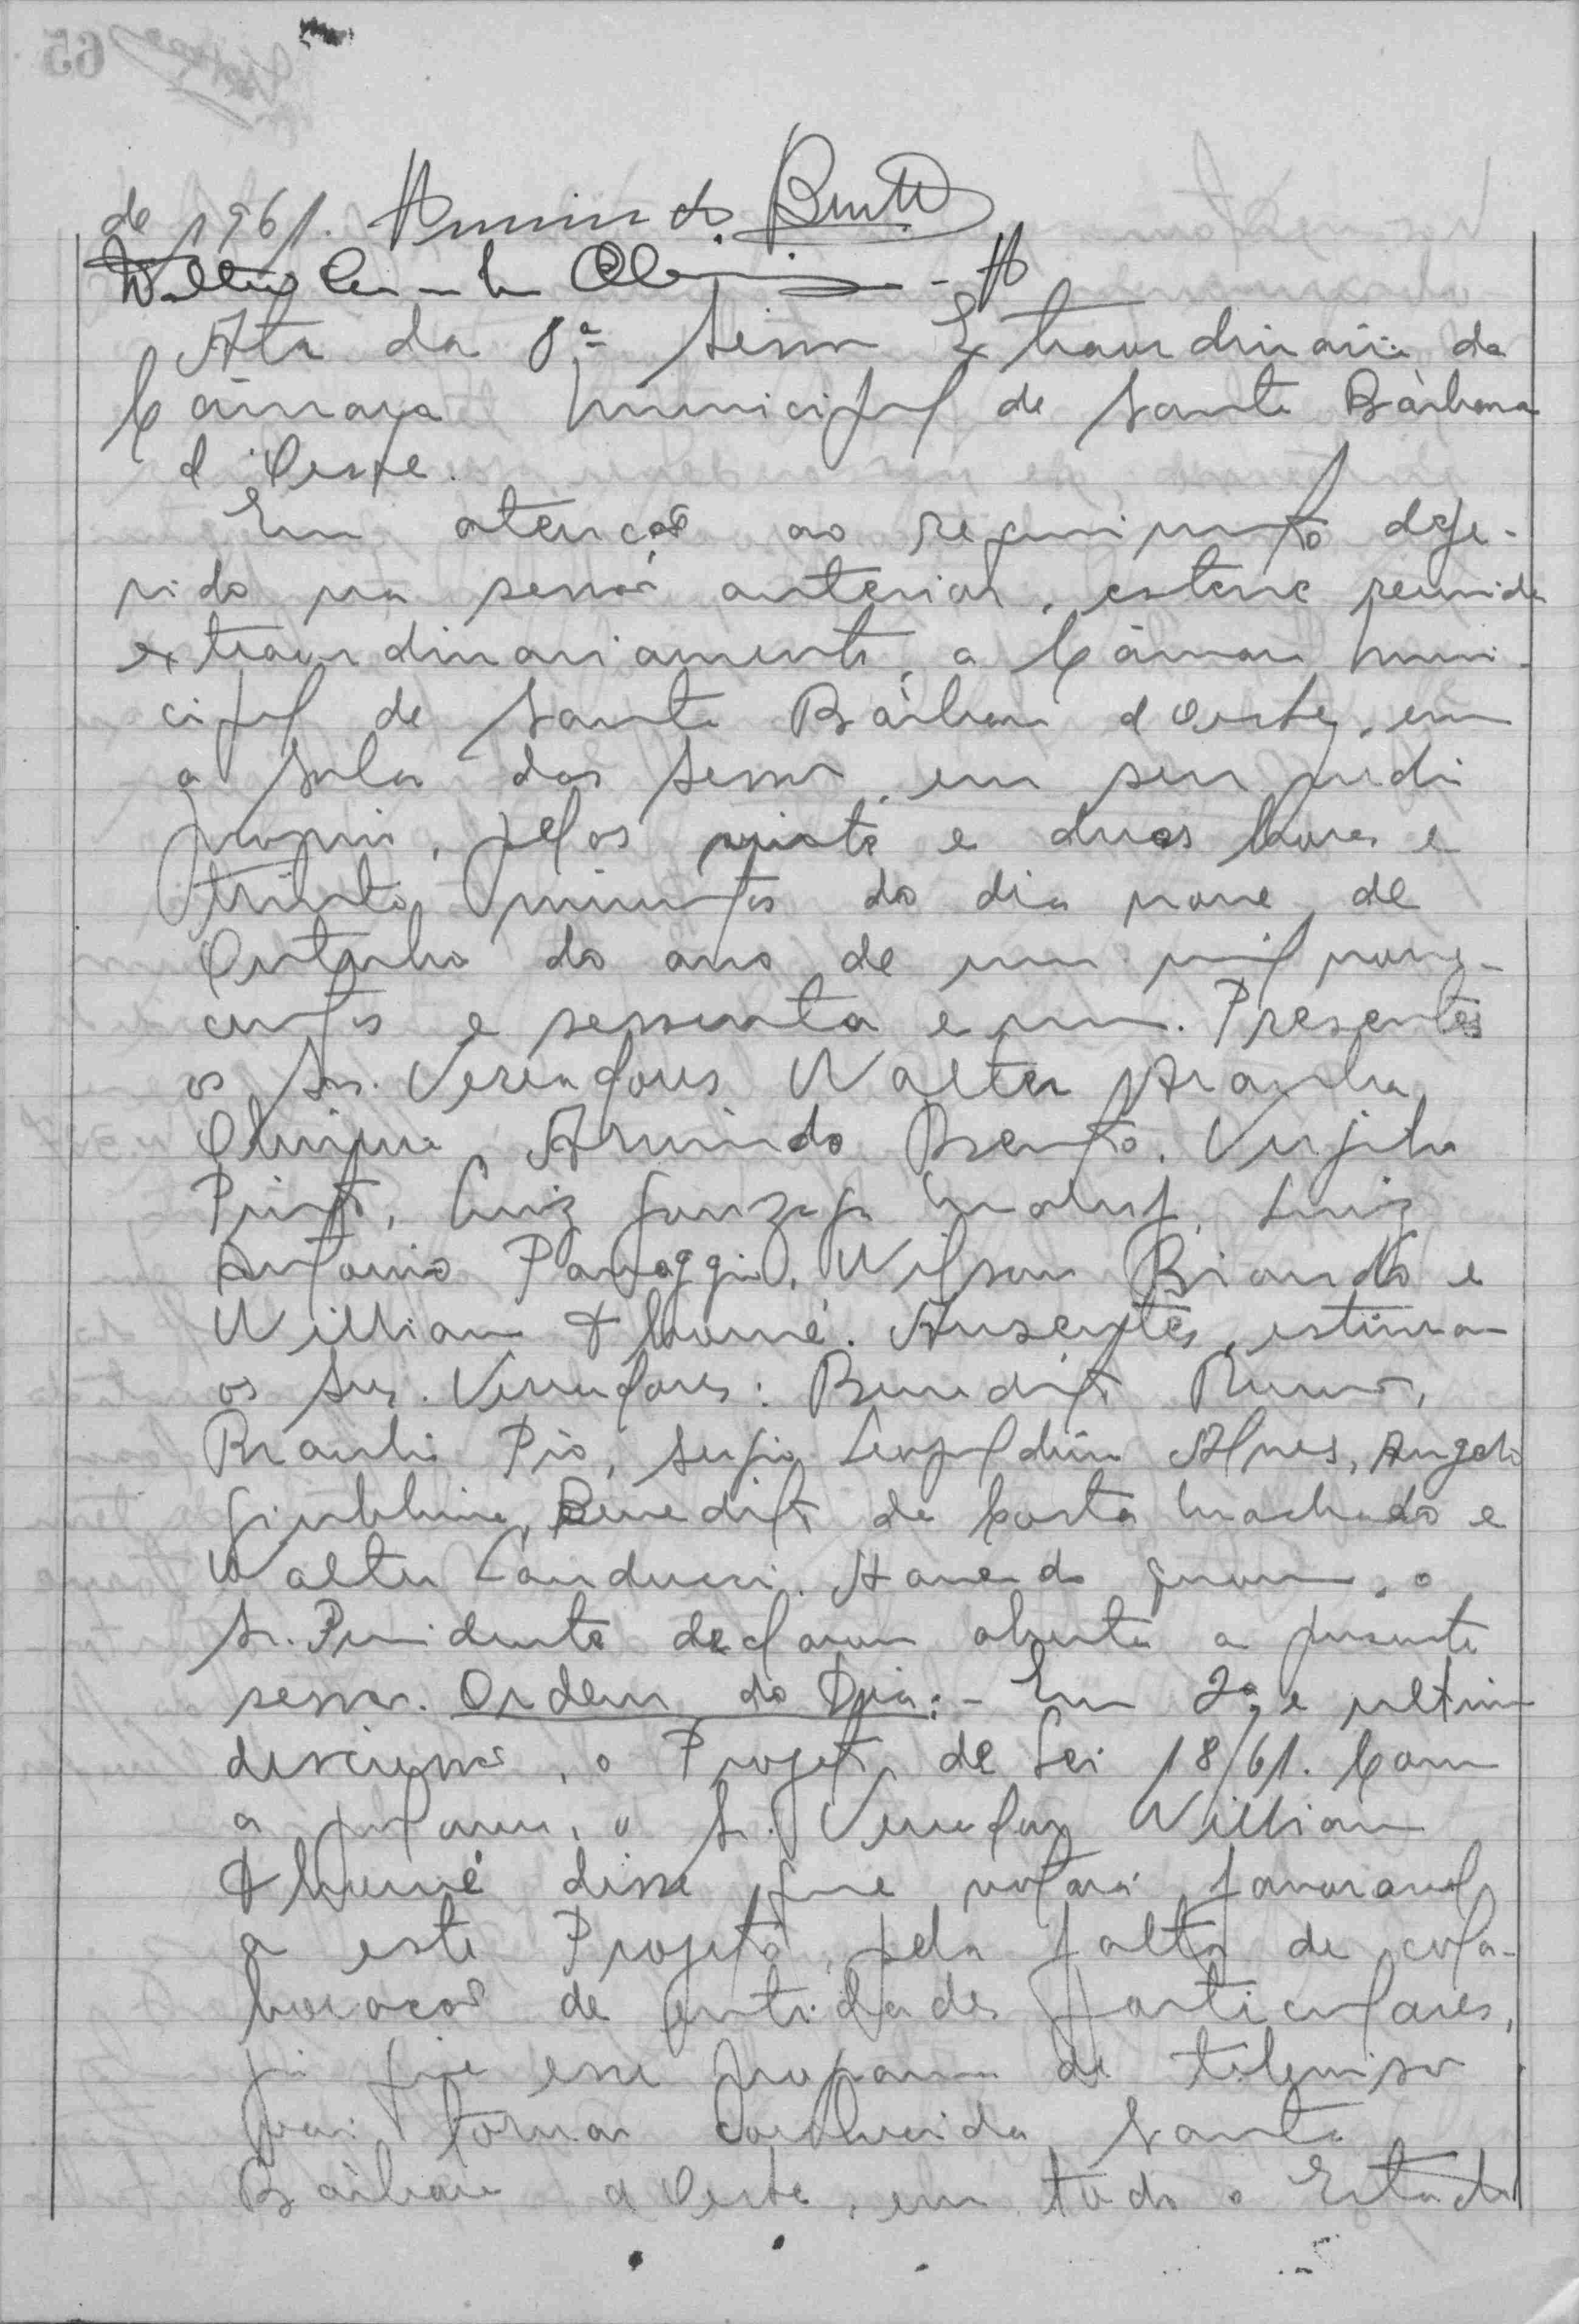 de 1961. Armindo Bento
Walter
Ata da 8ª Sessão Extraordinária da
Câmara Municipal de Santa Bárbara
d'Oeste.
Em atenção ao requerimento defe-
rido na sessão anterior, esteve reunida
extraordinariamente, a Câmara Muni-
cipal de Santa Bárbara d'Oeste, em
a sala das sessões, em seu prédio
proprio, pelos vinte e duas horas e
trinta minutos do dia nove de
Outubro do ano de um mil nove-
centos e sessenta e um. Presentes
os Srs. Vereadores Walter Aranha
Oliveira, Armindo Bento, Virgilio
Pinto, Luiz Gonzaga Maluf, Luiz
Antonio Panaggio, Wilson Brando e
Willian Thomé. Ausentes, estiveram
os Srs. Vereadores: Benedito Romano,
Braulio Pio, Sergio Leopoldino Alves, Angelo
Giubbina, Benedito da Costa Machado e
Walter Landucci. Havendo quorum, o
Sr. Presidente declarou aberta a presente
sessão. Ordem do Dia:- Em 2ª e ultima
discussão, o Projeto de Lei 18/61. Com
a palavra, o Sr. Vereador Willian
Thomé disse que votará favoravel
a este Projeto, pela falta de cola-
boração de entidades particulares,
já que esse programa de televisão
vai tornar conhecida Santa
Bárbara d'Oeste, em todo o Estado